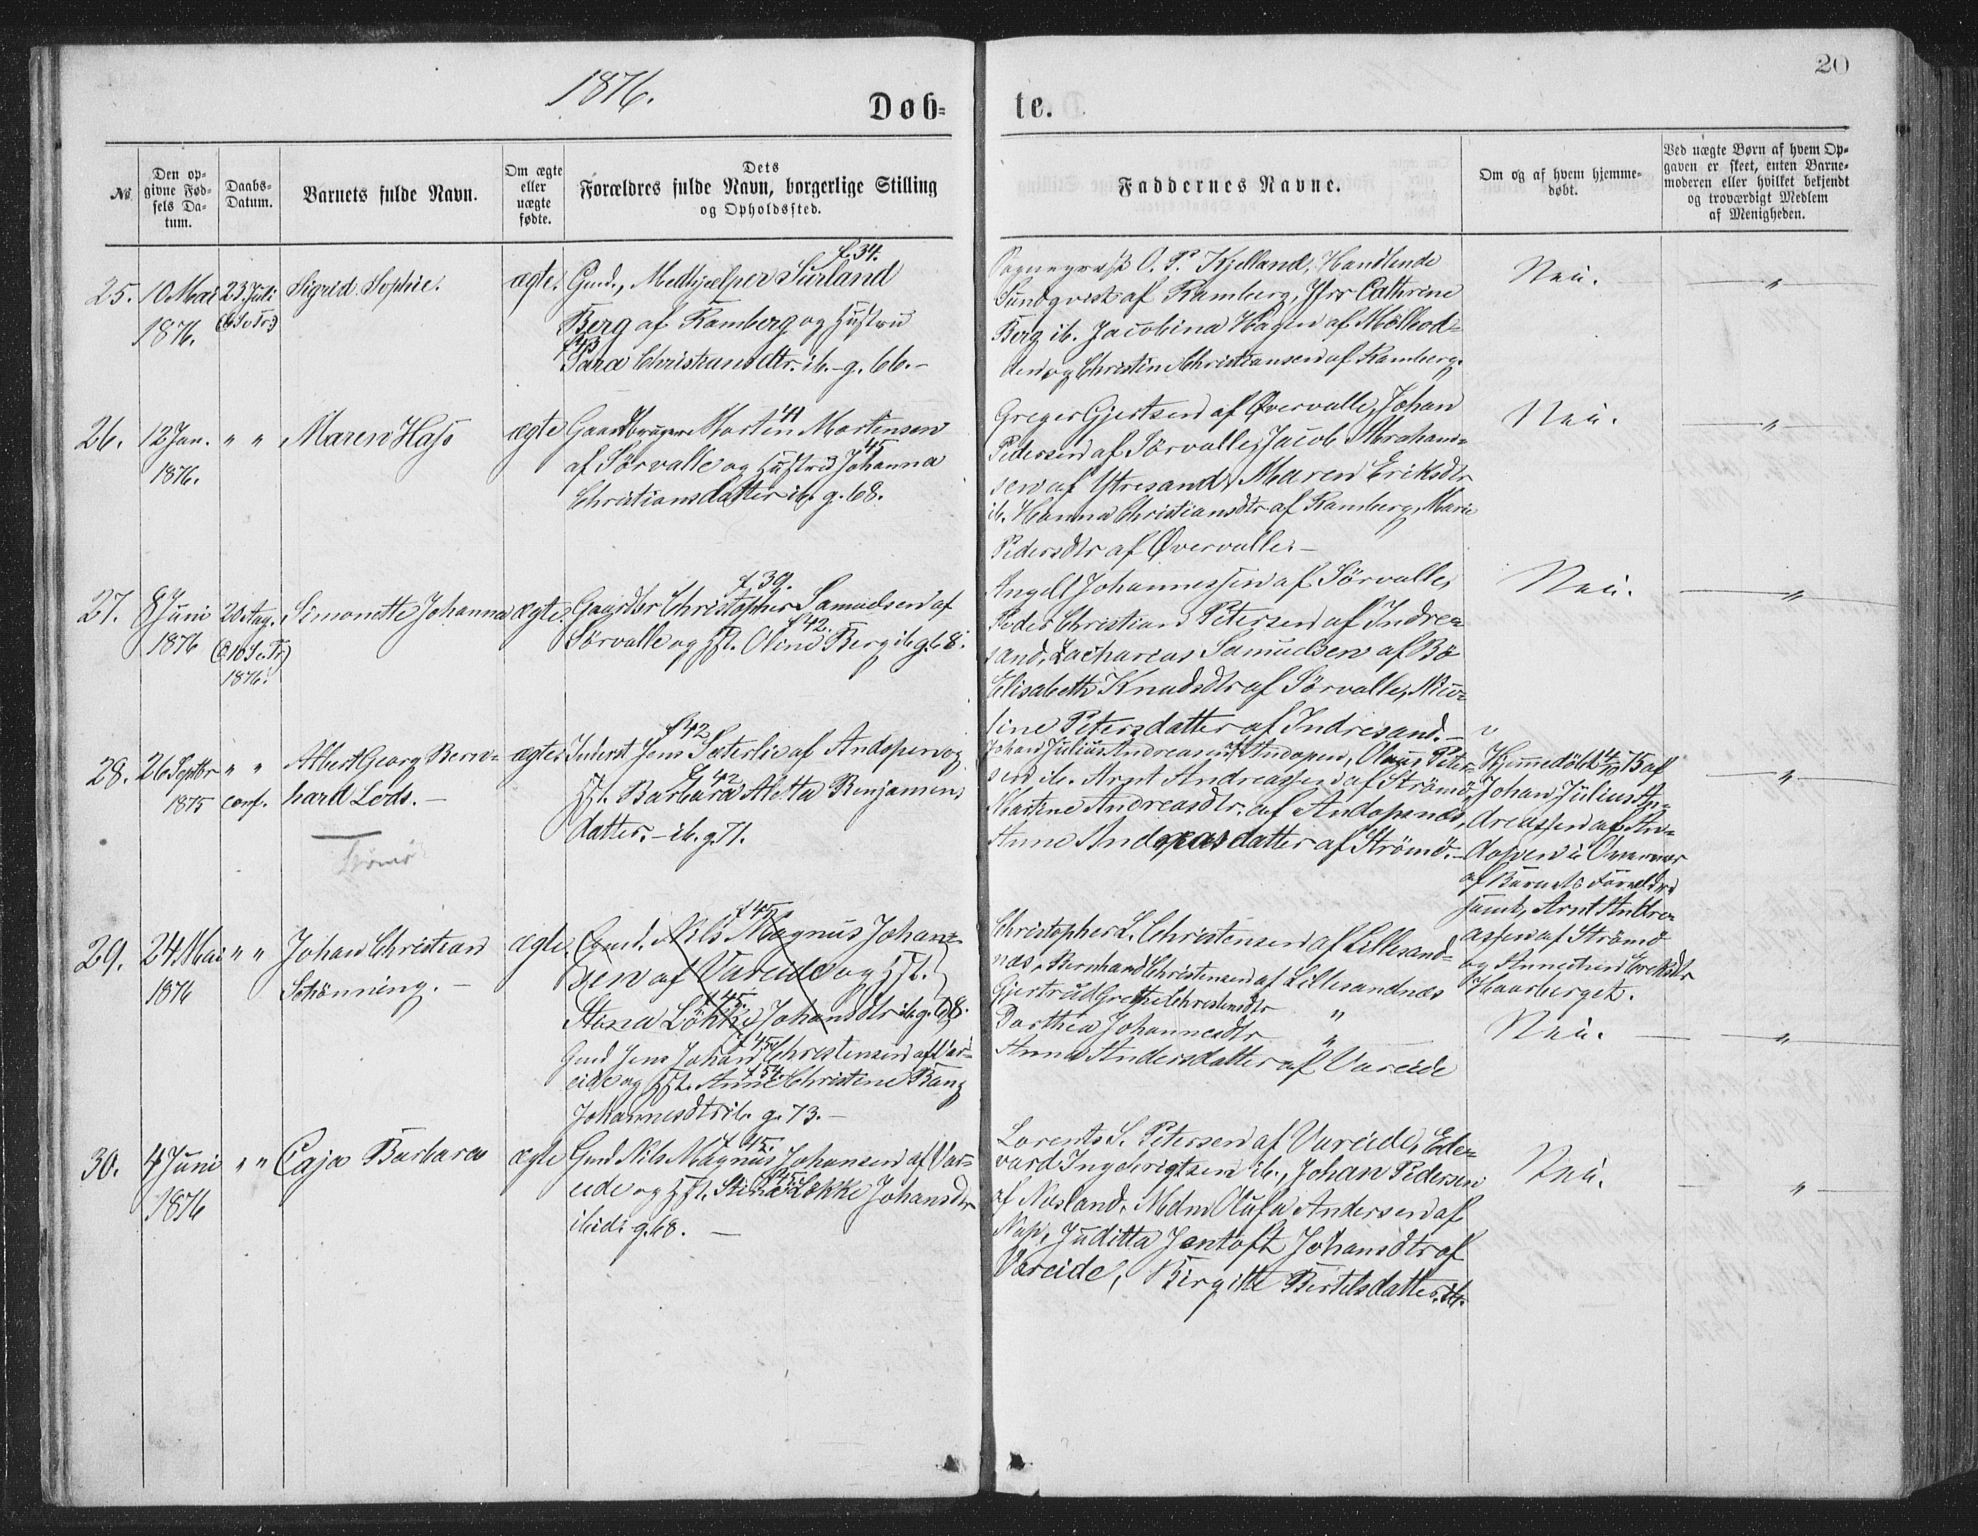 1876.
20
Døb-
te.
No
Den op-
givne Fød-
sels Da-
tum.
Daabs-
Datum.
Barnets fulde Navn.
Om ægte
eller
uægte
fødte.
Dets
Forældres fulde Navn, borgerlige Stilling
og Opholdssted.
Faddernes Navne.
Om og af hvem hjemme-
døbt.
Ved uægte Børn af hvem Op-
gaven er skeet, enten Barne-
moderen eller hvilket bekjendt
og troværdigt Medlem
af Menigheden.
25. 10 Mai 23 Juli Sigrid Sophie. ægte.
1876. (6 S e Tr)
f. 34.
Gmd., Medhjælper Surland
Berg af Ramberg og Hustru
f 43
Sara Christiansdtr. ib. - g. 66. -
O. P. Kjelland, Handlende
Sundqvist af Ramberg, Jfr Cathrine
Berg ib. Jacobina Hagen af Mølhod-
den og Christine Christiansen af Ramberg.
Nei. "
26. 12 Jan. " " Maren Hass ægte
1876.
41
Gaardbruger Morten Mortensen
45
af Sørvalle og Hustru Johanna
Christiansdatter ib. g. 68.
Greger Gjertsen af Øvervalle, Johan
Pedersen af Sørvalle, Jacob Abraham-
sen af Ytresand, Maren Eriksdtr
ib. Hanna Christiansdtr af Ramberg, Marie
Pedersdtr af Øvervalle. -
Nei. "
27. 8 Juni 20 Aug. Simonette Johanna ægte.
1876 (10 S e Tr)
1876.
f 39.
Gaardbr Christopher Samuelsen af
f 42.
Sørvalle og Hst. Oline Berg ib g. 68.
Angell Johannessen af Sørvalle,
Peder Christian Petersen af Indre-
sand, Zacharias Samuelsen af Bø
Elisabeth Knudsdtr af Sørvalle,
sine Petersdatter af Indresand. -
Nei. "
28. 26 Septbr " " Albert Georg Bern- ægte.
1875 conf. hard Lods. -
Fjørnø
f 42
Inderst Jens Sæterlie af Andopen og
f 42
Hst. Barbara Aletta Benjamins
datter. - ib. g. 71.
Johan Julius Andreasen af Andopen, Olaus Peter-
sen ib. Arnt Andreassen af Strømø,
Martine Andreasdtr. af Andopnes,
Anne Andreasdatter af Strømø. -
Hjemmedøbt 4/10 75 af
Johan Julius An-
dreassen af An-
dopen i Overvær
af Barnets Forældre
samt, Arnt Andre-
assen af Strømø
og Annechen Eriksdtr
Haarberget. "
29. 24 Mai " " Johan Christian ægte.
1876 Schönning. -
f 45
Gmd. Nils Magnus Johan-
sen af Vareide og Hst.
f 45.
Stina Løkke Johansdtr ib g. 68.
f 45
Gmd Jens Johan Christensen af Var-
f 54.
eide og Hst. Anne Christine Bang
Johannesdtr ib. g. 73. -
Christopher L. Christensen af Lillesand-
næs, Bernhard Christensen af Lillesandnæs
Gjertrud Grethe Christensdtr "
Dorthea Johannesdtr "
Anna Andersdatter af Vareide
Nei. "
30. 4 Juni " " Caja Barbara ægte
1876
f 45.
Gmd Nils Magnus Johansen af Var-
f 45.
eide og Hst. Stina Løkke Johansdtr
ibid: g. 68. -
Lorents S. Petersen af Vareide, Ed-
vard Ingebrigtsen ib., Johan Pedersen
af Nusland, Mdm Olufa Andersen af
Nap, Juditta Jentoft Johansdtr af
Vareide, Birgitte Bertelsdatter ib.
Nei. "